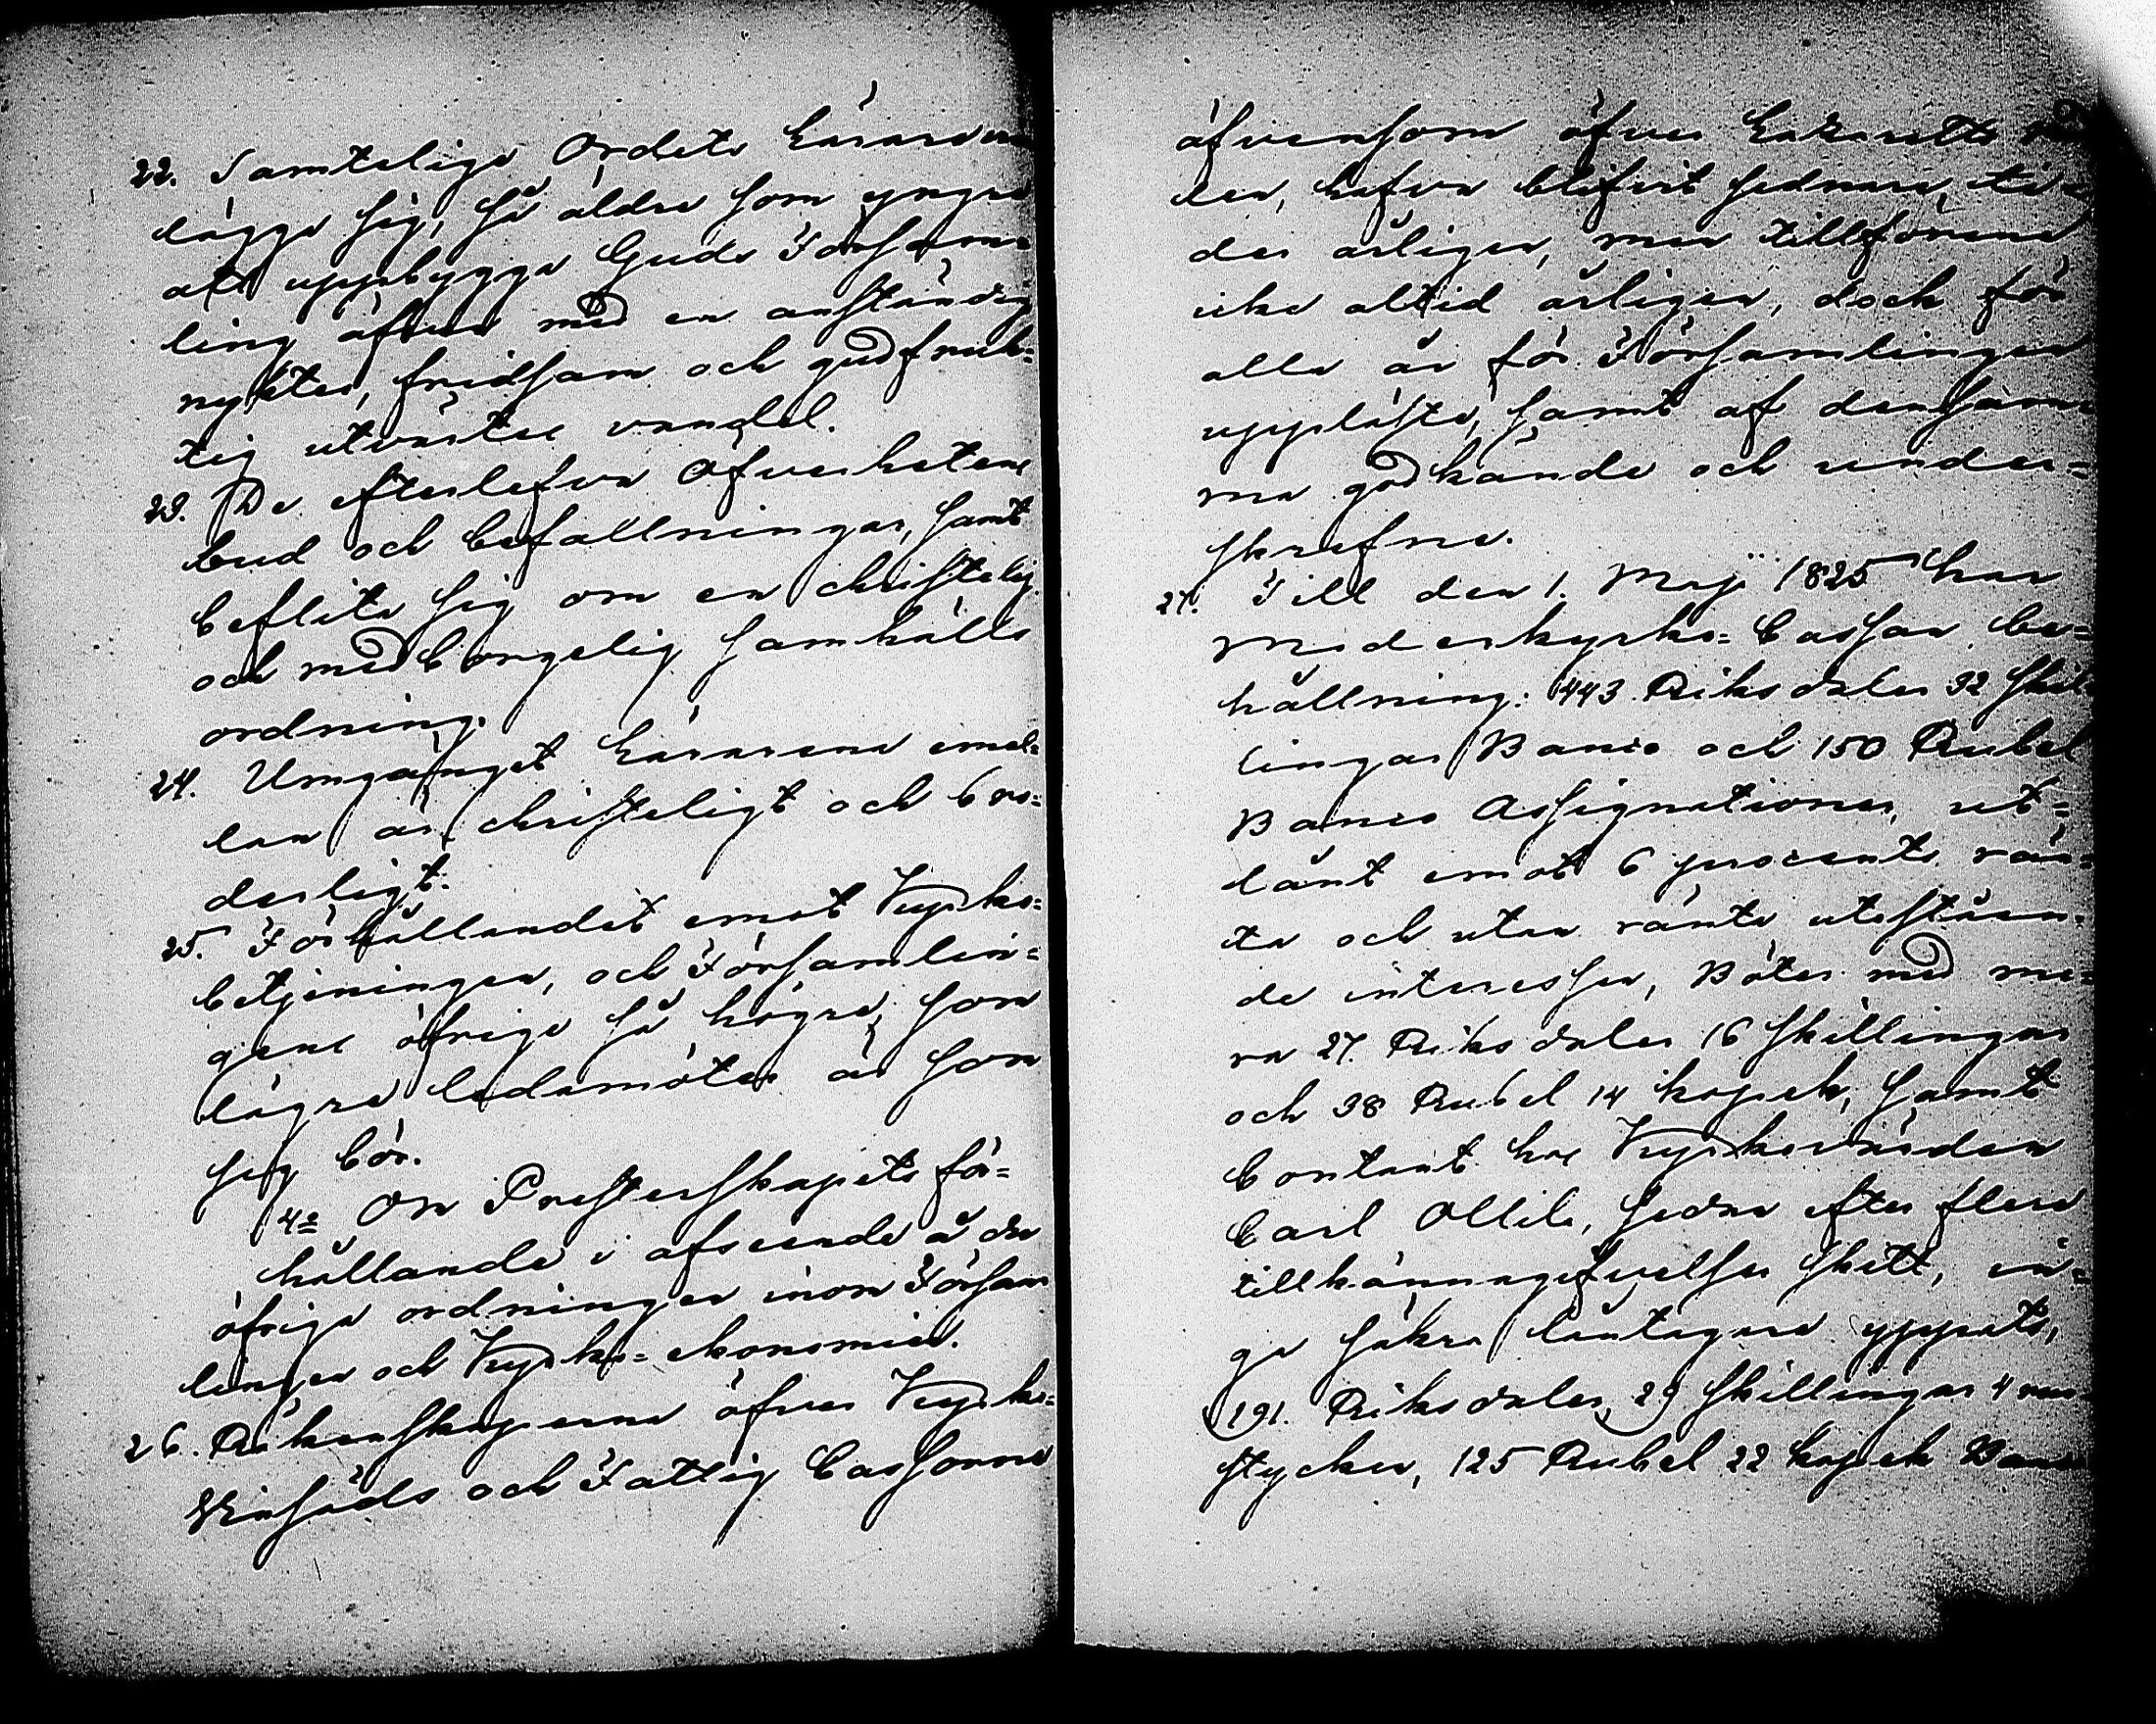 22. Samtelige Ordets Lärare vin
lägge sig, så äldre som yngre
att uppbygga Guds Försam=
ling äfven med en anständig
nykter, fridsam och gudfruk=
tig utvärtes vandel.
23. De efterlefva Öfverhetens
bud och befallningar, samt
beflita sig om en christelig
och medborgelig samhälls
ordning.
24. Umgänget Lärarena emel=
lan är christeligt och bro=
derligt.
25. Förhållandet emot Kyrko=
betjeningen, och Församlin=
gens öfrige så högre, som
lägre ledamöter är som
sig bör.
4º Om Presterskapets för=
hållande i afseende å de
öfriga ordningar inom Försam
lingen och Kyrko=ekonomien.
26. Räkenskaperne öfver Kyrko=
Kinsäds och Fattig Cassorne
äfvensom öfver Lazaretts
len, hafva blifvit sednare ti=
der årligen, men tillförene
icke altid årligen, dock för
alla år för Församlingen
uppläste, samt af densam
ma godkände och under=
skrefne.
27. Till den 1. Maji 1825 har
Moderkyrko=Cassan be=
hållning: 443 Riksdaler 32 skil
lingar Banco och 150 Rubel
Banco Assignationer, ut=
lånt emot 6 procents rän=
ta och utan ränta uteståen=
de interessen, Böter med me=
ra 27. Riksdaler 16 skillingar
och 38 Rubel 14 kopek, samt
Contant hos Kyrkovärden
Carl Ollila, sedan efter flere
tillkännagifvelser skett, in=
ga säkra låntagare yppats,
191. Riksdaler, 29 skillingar 4 run
stycken, 125 Rubel 22 kopek Banco